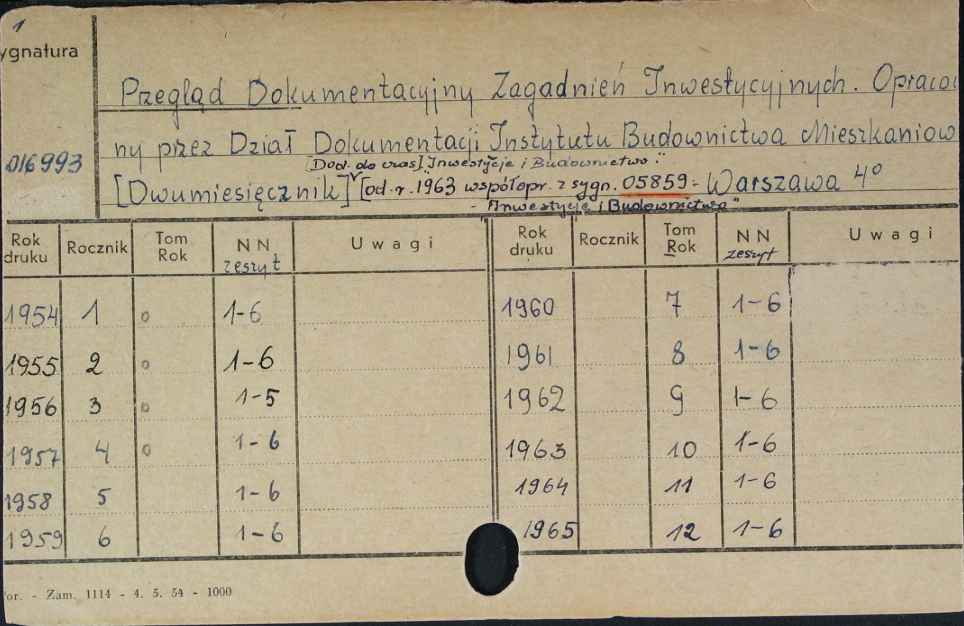 1
ygnatura
Przegląd Dokumentacyjny Zagadnień Inwestycyjnych. Opraco
016993
ny przez Dział Dokumentacji Instytutu Budownictwa Mieszkaniow
[Dod. do czas] "Inwestycje i Budownictwo".
[Dwumiesięcznik] [od r. 1963 współopr. z sygn. 05859 - Warszawa 4°
- "Inwestycje i Budownictwo"
Rok druku Rocznik Tom Rok NN zeszyt Uwagi Rok druku Rocznik Tom Rok NN zeszyt Uwagi
1954 1 o 1-6 1960 7 1-6
1955 2 o 1-6 1961 8 1-6
1956 3 o 1-5 1962 9 1-6
1957 4 o 1-6 1963 10 1-6
1958 5 1-6 1964 11 1-6
1959 6 1-6 1965 12 1-6
or. - Zam. 1114 - 4. 5. 54 - 1000